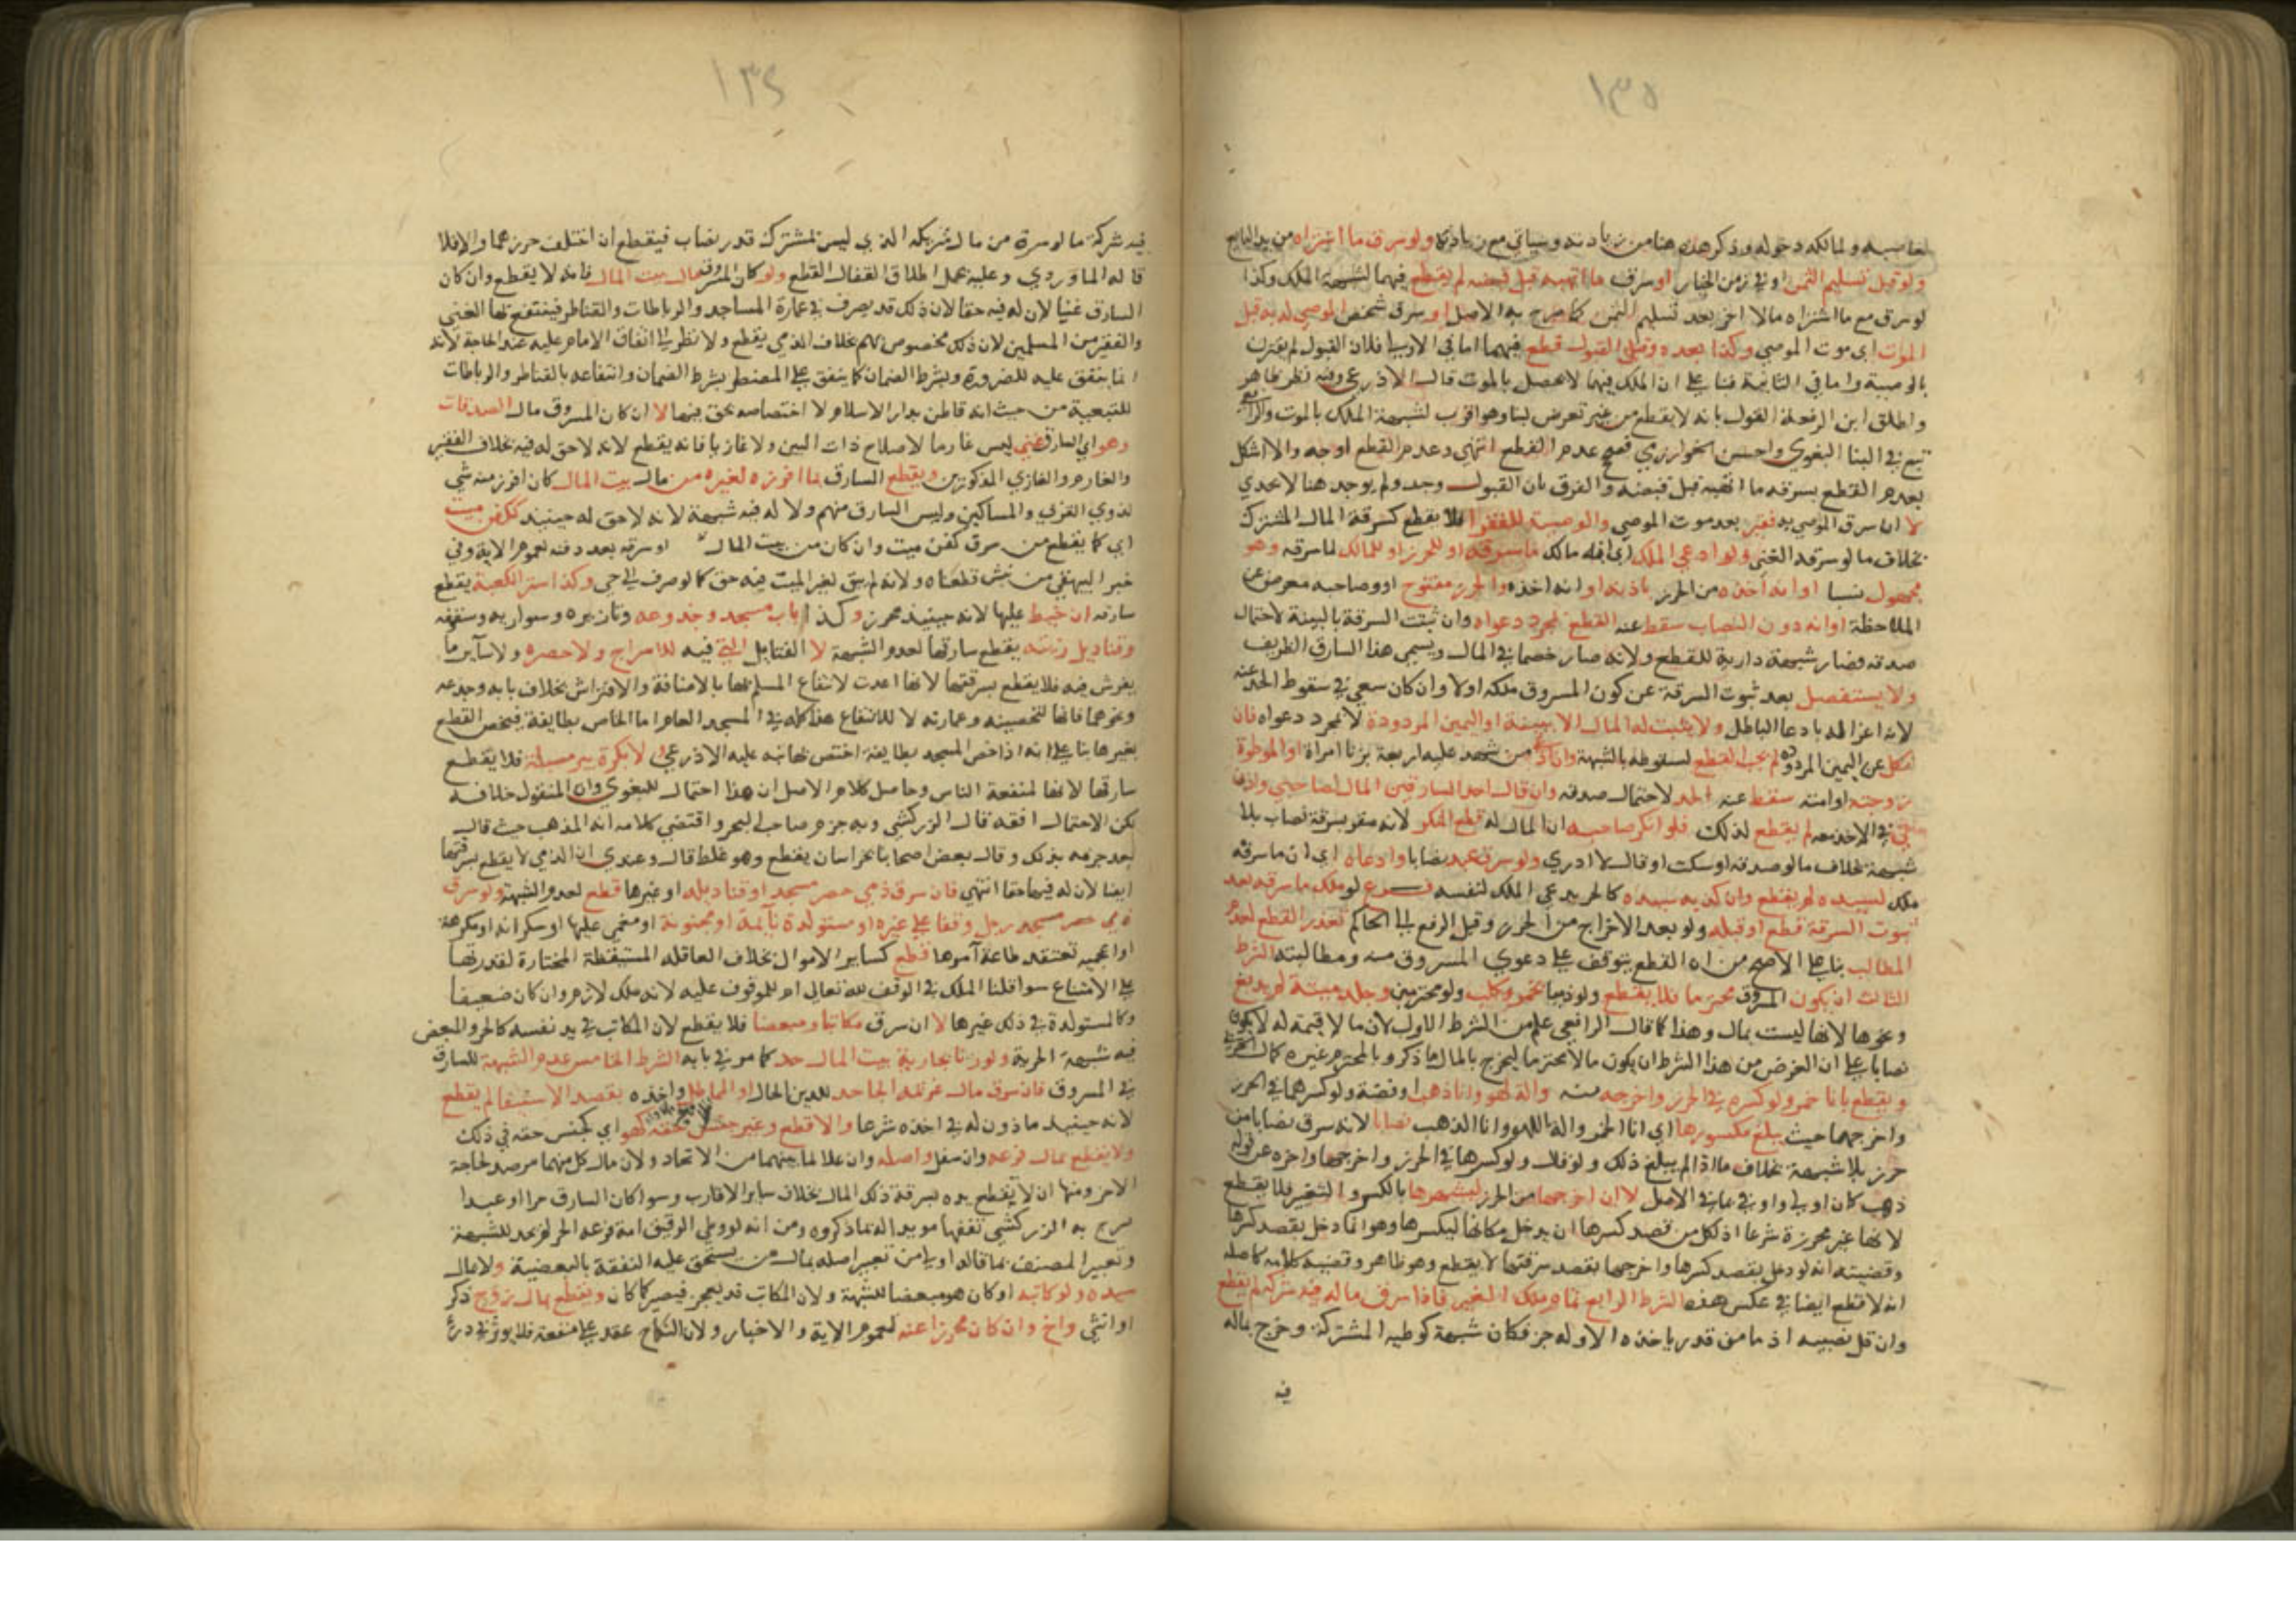 ١٣٥
لغاصبه ولمالكه دخوله وذكر هذه هنا من زيادته وسياتي مع زيادة ولو سرق ما اشتراه من يد البايع
ولو قبل تسليم الثمن او في زمن الخيار او سرق ما اتهبه قبل قبضه لم يقطع فيهما لشبهة الملك وكذا
لو سرق مع ما اشتراه مالا اخر بعد تسليم الثمن كما صرح به الاصل او سرق شخص الموصي له به قبل
الموت اي موت الموصي وكذا بعده وقبل القبول قطع فيهما اما في الاولي فلان القبول لم يقترن
بالوصية واما في الثانية فبنا علي ان الملك فيها لا يحصل بالموت قال الاذرعي وفيه نظر ظاهر
واطلق ابن الرفعة القول بانه لا يقطع من غير تعرض لبنا وهو اقرب لشبهة الملك بالموت والرافعي
تبع في البنا البغوي واحسن الخوارزمي فصحح عدم القطع انتهي وعدم القطع اوجه والا اشكل
بعدم القطع بسرقه ما اتهبه قبل قبضه والفرق بان القبول وجد ولم يوجد هنا لا يجدي
لا ان سرق الموصي به فقير بعد موت الموصي والوصية للفقرا فلا يقطع كسرقة المال المشترك
بخلاف ما لو سرقه الغني ولو ادعي الملك اي انه مالك لما سرقه او للحرز او لمالك لما سرقه وهو
مجهول نسبا او انه اخذه من الحرز باذنه او انه اخذه والحرز مفتوح او وصاحبه معرض عن
الملاحظة او انه دون النصاب سقط عنه القطع بمجرد دعواه وان ثبتت السرقة بالبينة لاحتمال
صدقه فصار شبهة دارية للقطع ولانه صار خصما في المال ويسمي هذا السارق الظريف
ولا يستفصل بعد ثبوت السرقة عن كون المسروق ملكه اولا وان كان سعي في سقوط الحد عنه
لانه اغرا له بادعا الباطل ولا يثبت له المال الا ببينة او اليمين المردودة لا بمجرد دعواه فان
نكل عن اليمين المردودة لم يجب القطع لسقوطه بالشبهة وان اد من شهد عليه اربعة بزنا امراة او الموطوة
زوجته او امته سقط عنه الحد لاحتمال صدقه وان قال احد السارقين المال لصاحبي واذن
لي في الاخذ معه لم يقطع لذلك فلو انكر صاحبه ان المال له قطع المنكر لانه مقر بسرقة نصاب بلا
شبهة بخلاف ما لو صدقه او سكت او قال لا ادري ولو سرق عبد نصابا وادعاه اي ان ما سرقه
ملك لسيده لم يقطع وان كذبه سيده كالحر يدعي الملك لنفسه فرع لو ملك ما سرقه بعد
ثبوت السرقة قطع او قبله ولو بعد الاخراج من الحرز وقبل الرفع الي الحاكم تعذر القطع لعدم
المطالب بنا علي الاصح من ان القطع يتوقف علي دعوي المسروق منه ومطالبته الشرط
الثالث ان يكون المسروق محترما فلا يقطع ولو ذميا بخمر وكلب ولو محترمين وجلد ميتة لم يدبغ
ونحوها لانها ليست بمال وهذا كما قال الرافعي علم من الشرط الاول لان ما لا قيمة له لا يكون
نصابا علي ان الغرض من هذا الشرط ان يكون مالا محترما ليخرج بالمال ما ذكر وبالمحترم غيره كمال الحربي
ويقطع بانا خمر ولو كسره في الحرز واخرجه منه والة لهو وانا ذهب او فضة ولو كسرهما في الحرز
واخرجهما حيث يبلغ مكسورها اي انا الخمر والة اللهو وانا الذهب نصابا لانه سرق نصابا من
حرز بلا شبهة بخلاف ما اذا لم يبلغ ذلك ولو قال ولو كسرها في الحرز واخرجها واخره عن قوله
ذهب كان اولي واوفي بما في الاصل لا ان اخرجها من الحرز ليشهرها بالكسر والتغيير فلا يقطع
لانها غير محرزة شرعا اذ لكل من قصد كسرها ان يدخل مكانها ليكسرها وهو انما دخل بقصد كسرها
وقضيته انه لو دخل بقصد كسرها واخرجها بقصد سرقتها لا يقطع وهو ظاهر وقضية كلامه كاصله
انه لا قطع ايضا في عكس هذه الشرط الرابع تمام ملك الغير فاذا سرق ما له فيه شركة لم يقطع
وان قل نصيبه اذ ما من قدر ياخذه الا وله جز فكان شبهة كوطيه المشتركة وخرج بماله
فيه
١٣٤
فيه شركة ما لو سرق من مال شريكه الذي ليس لمشترك قدر نصاب فيقطع ان اختلف حرزهما والا فلا
قاله الماوردي وعليه حمل اطلاق القفال القطع ولو كان المسروق مال بيت المال فانه لا يقطع وان كان
السارق غنيا لان له فيه حقا لان ذلك قد يصرف في عمارة المساجد والرباطات والقناطر فينتفع بها الغني
والفقير من المسلمين لان ذلك مخصوص بهم بخلاف الذمي يقطع ولا نظر الي انفاق الامام عليه عند الحاجة لانه
انما ينفق عليه للضرورة وبشرط الضمان كما ينفق علي المضطر بشرط الضمان وانتفاعه بالقناطر والرباطات
للتبعية من حيث انه قاطن بدار الاسلام لا اختصاصه بحق فيها لا ان كان المسروق مال الصدقات
وهو اي السارق غني ليس غارما لاصلاح ذات البين ولا غازيا فانه يقطع لانه لا حق له فيه بخلاف الفقير
والغارم والغازي المذكورين ويقطع السارق بما افرزه لغيره من مال بيت المال كان افرز منه شي
لذوي القربي والمساكين وليس السارق منهم ولا له فيه شبهة لانه لا حق له حينيذ ككفن ميت
اي كما يقطع من سرق كفن ميت وان كان من بيت المال او سرقه بعد دفنه لعموم الاية وفي
خبر البيهقي من نبش قطعناه ولانه لم يبق لغير الميت فيه حق كما لو صرف الي حي وكذا ستر الكعبة يقطع
سارقه ان خيط عليها لانه حينيذ محرز وكذا باب مسجد وجذوعه وتازيره وسواريه وسقفه
وقناديل زينته يقطع سارقها لعدم الشبهة لا القناديل التي فيه للاسراج ولا حصره ولا ساير ما
يفرش فيه فلا يقطع بسرقتها لانها اعدت لانتفاع المسلم بها بالاضاة والافتراش بخلاف بابه وجذعه
ونحوهما فانها لتحصينه وعمارته لا للانتفاع هذا كله في المسجد العام اما الخاص بطايفة فيختص القطع
بغيرها بنا علي انه اذا خص المسجد بطايفة اختص بها نبه عليه الاذرعي ولا بكرة بير مسبلة فلا يقطع
سارقها لانها لمنفعة الناس وحاصل كلام الاصل ان هذا احتمال للبغوي وان المنقول خلافه
لكن الاحتمال افقه قال الزركشي وبه جزم صاحب البحر واقتضي كلامه انه المذهب حيث قال
بعد جزمه بذلك وقال بعض اصحابنا بخراسان يقطع وهو غلط قال وعندي ان الذمي لا يقطع بسرقتها
ايضا لان له فيها حقا انتهي فان سرق ذمي حصر مسجد او قناديله او غيرها قطع لعدم الشبهة ولو سرق
حصر مسجد رجل وقفا علي غيره او مستولدة نايمة او مجنونة او مغمي عليها او سكرانه او مكرهة
او اعجمية تعتقد طاعة آمرها قطع كساير الاموال بخلاف العاقلة المستيقظة المختارة لقدرتها
علي الامتناع سوا قلنا الملك في الوقف لله تعالي ام للموقوف عليه لانه ملك لازم وان كان ضعيفا
وكالمستولدة في ذلك غيرها لا ان سرق مكاتبا ومبعضا فلا يقطع لان المكاتب في يد نفسه كالحر والمبعض
فيه شبهة الحرية ولو زنا بجارية بيت المال حد كما مر في بابه الشرط الخامس عدم الشبهة للسارق
في المسروق فان سرق مال غريمه الجاحد للدين الحال او المماطل واخذه بقصد الاستيفا لم يقطع
لانه حينيذ ماذون له في اخذه شرعا والا قطع وغير جنس حقه كهو اي كجنس حقه في ذلك
ولا يقطع بمال فرعه وان سفل واصله وان علا لما بينهما من الاتحاد ولان مال كل منهما مرصد لحاجة
الاخر ومنها ان لا تقطع يده بسرقة ذلك المال بخلاف ساير الاقارب وسوا كان السارق حرا او عبدا
صرح به الزركشي تفقها مويدا له بما ذكروه ومن انه لو وطي الرقيق امة فرعه الحر لم يحد للشبهة
وتعبير المصنف بما قاله اولي من تعبير اصله بمال من يستحق عليه النفقة بالبعضية ولا مال
سيده ولو كاتبه او كان هو مبعضا للشبهة ولان المكاتب قد يعجز فيصير كما كان ويقطع بمال زوج ذكر
او انثي واخ وان كان محرزا عنه لعموم الاية والاخبار ولان النكاح عقد علي منفعة فلا يوثر في درء